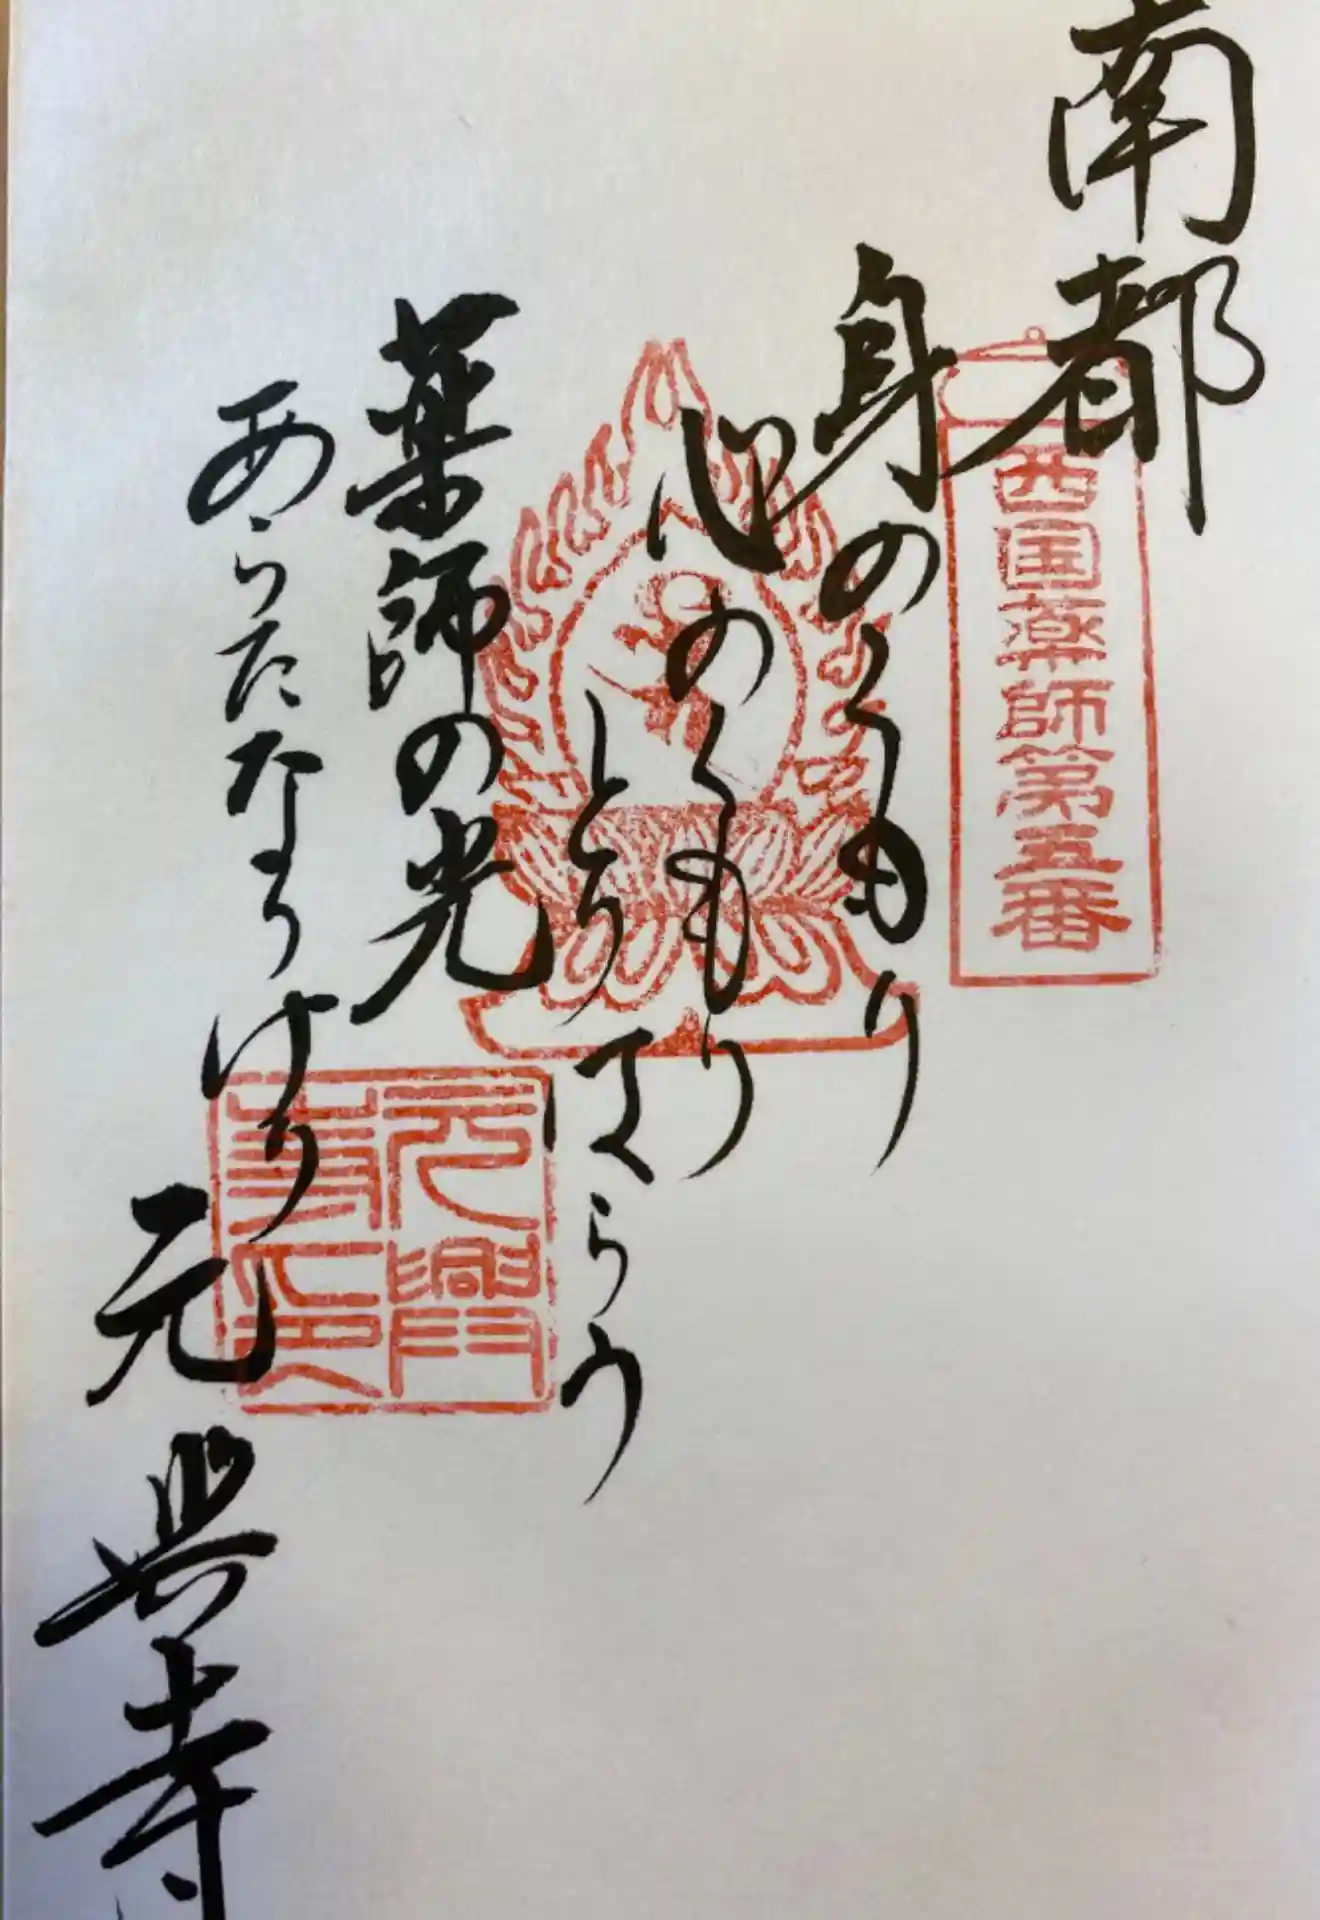 南都
西国薬師第五番
身のくもり
心のくもり
とりはらう
薬師の光
あらたなりけり
元興寺
元興寺印